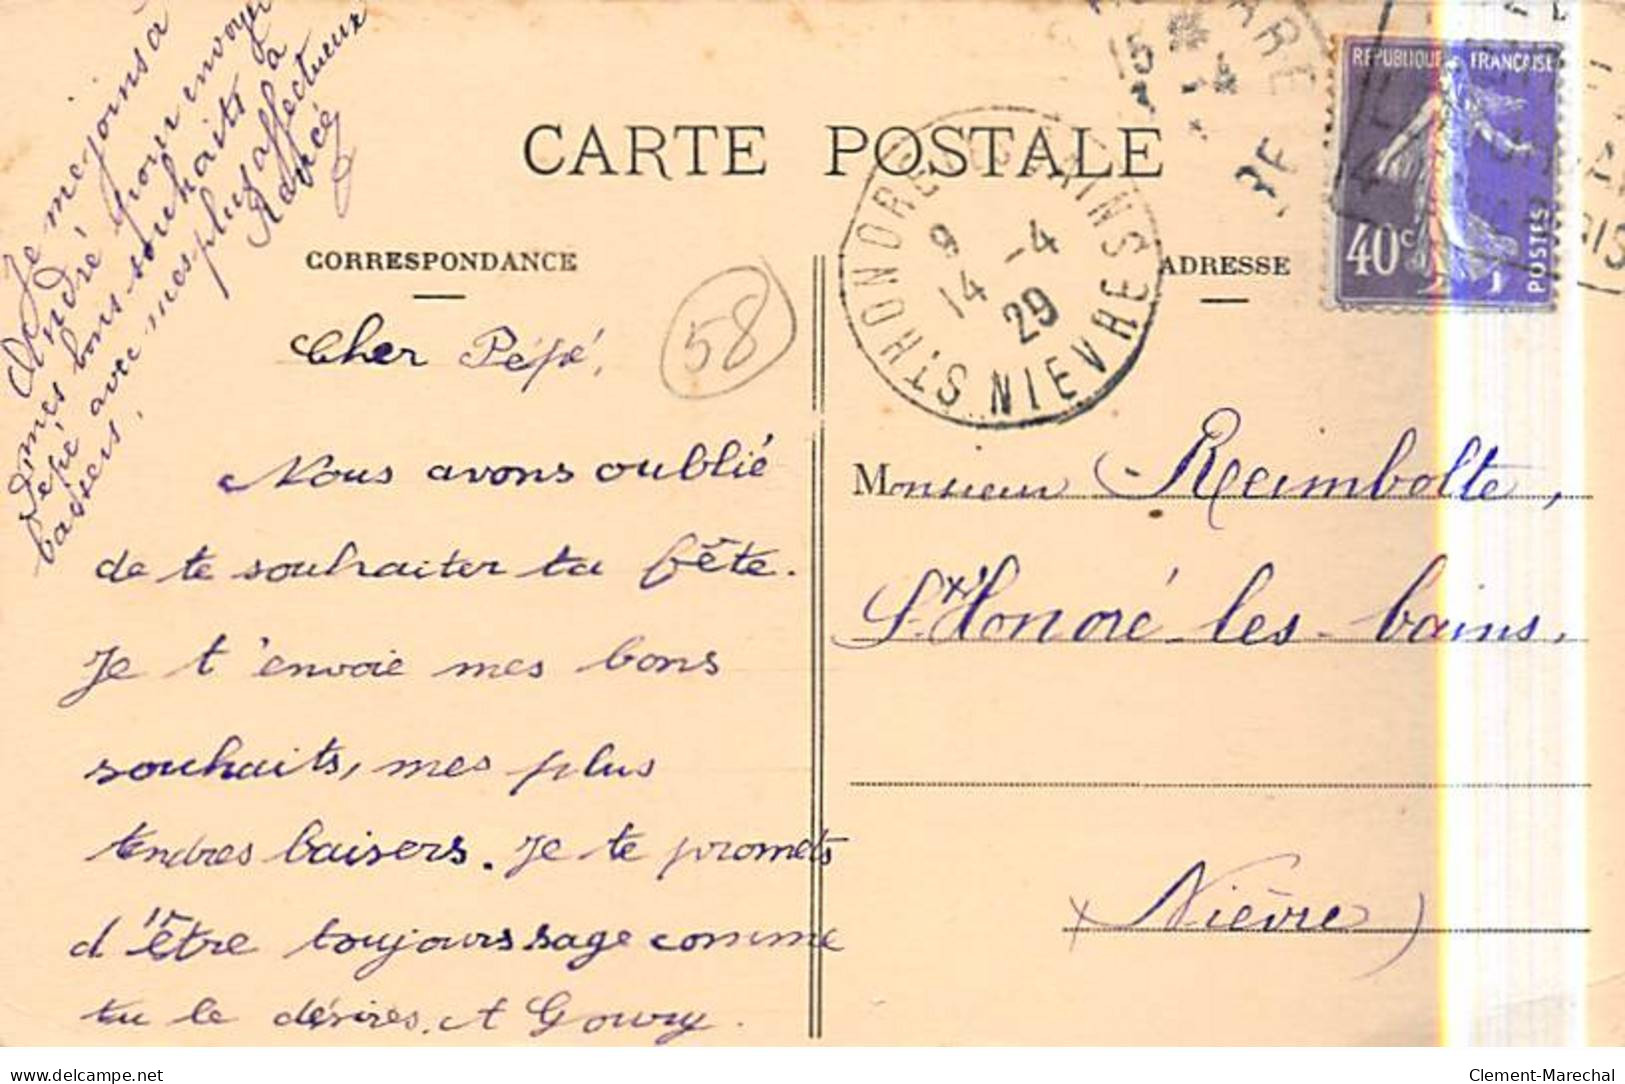 Je me joins à
André pour envoyer
mes bons souhaits à
Pépé avec mes plus affectueux
baisers.
CARTE POSTALE
CORRESPONDANCE
ADRESSE
RÉPUBLIQUE FRANÇAISE
40c
POSTES
ST HONORÉ LES BAINS
NIEVRE
9
14 -4
29
15
-4
58
Cher Pépé,
Nous avons oublié
de te souhaiter ta fête.
Je t'envoie mes bons
souhaits, mes plus
tendres baisers. Je te promets
d'être toujours sage comme
tu le désires. A Goury.
Monsieur Reimbolte,
St Honoré-les-bains,
(Nièvre)
delcampe.net
Clement-Marechal